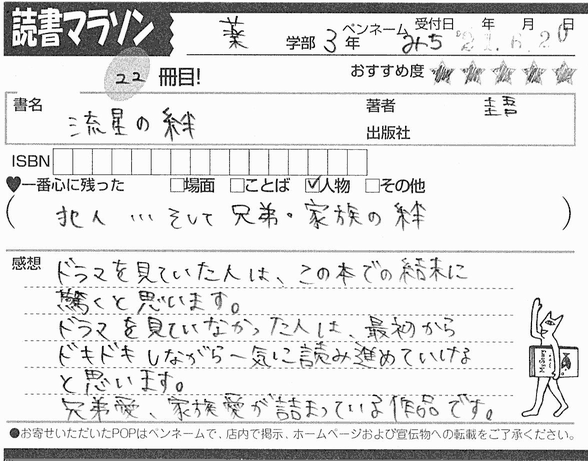 読書マラソン
薬 学部 3年 ペンネーム みち 受付日 '21年6月20日
22 冊目!
おすすめ度 ★★★★★
書名 流星の絆
著者 圭吾
出版社
ISBN
♥一番心に残った □場面 □ことば ☑人物 □その他
(犯人…そして兄弟・家族の絆)
感想
ドラマを見ていた人は、この本での結末に
驚くと思います。
ドラマを見ていなかった人は、最初から
ドキドキしながら一気に読み進めていける
と思います。
兄弟愛、家族愛が詰まっている作品です。
●お寄せいただいたPOPはペンネームで、店内で掲示、ホームページおよび宣伝物への転載をご了承ください。